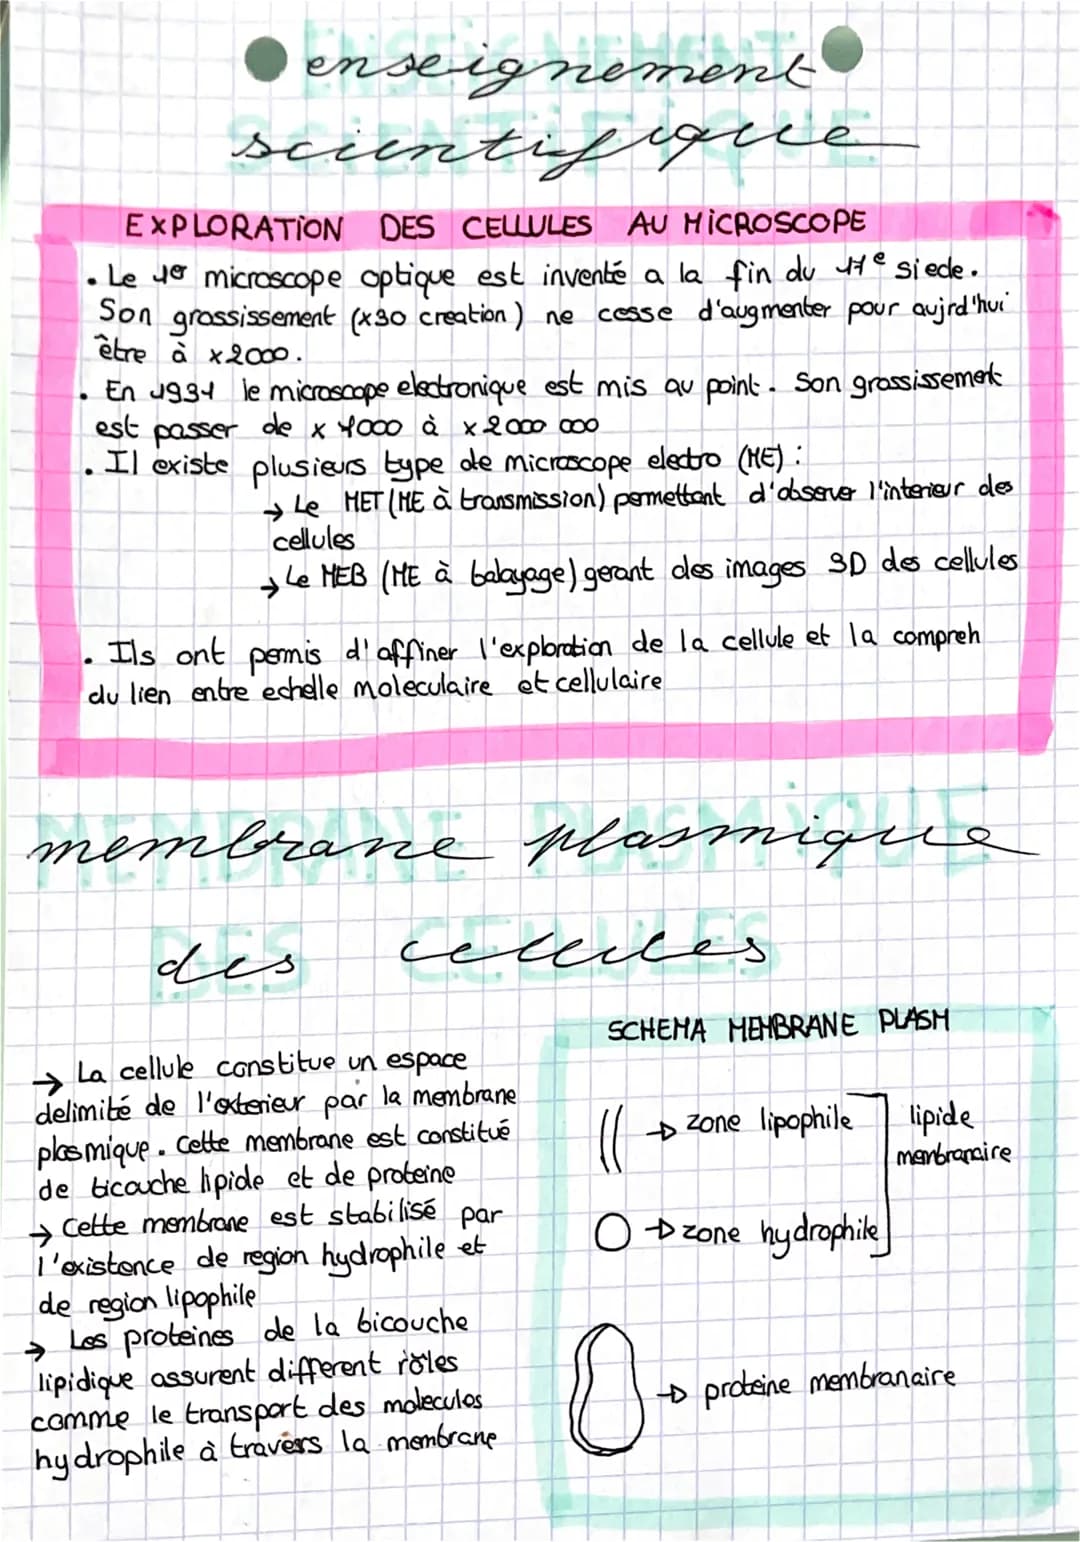 enseignement
scientifique
EXPLORATION DES CELLULES AU MICROSCOPE
• Le 1er microscope optique est inventé a la fin du 17e siecle.
Son grossissement (x30 creation) ne cesse d'augmenter pour aujrd'hui
être à x2000.
• En 1931 le microscope electronique est mis au point. Son grossissement
est passer de x 4000 à x 2 000 000
• Il existe plusieurs type de microscope electro (ME) :
→ Le MET (ME à transmission) permettant d'observer l'interieur des
cellules
→ Le MEB (ME à balayage) gerant des images 3D des cellules
• Ils ont permis d'affiner l'exploration de la cellule et la compreh
du lien entre echelle moleculaire et cellulaire
membrane plasmique
des cellules
→ La cellule constitue un espace
delimité de l'exterieur par la membrane
plasmique. Cette membrane est constitué
de bicouche lipide et de proteine
→ Cette membrane est stabilisé par
l'existence de region hydrophile et
de region lipophile
→ Les proteines de la bicouche
lipidique assurent different rôles
comme le transport des molecules
hydrophile à travers la membrane
SCHEMA MEMBRANE PLASM
→ zone lipophile
→ zone hydrophile
lipide
membranaire
→ proteine membranaire